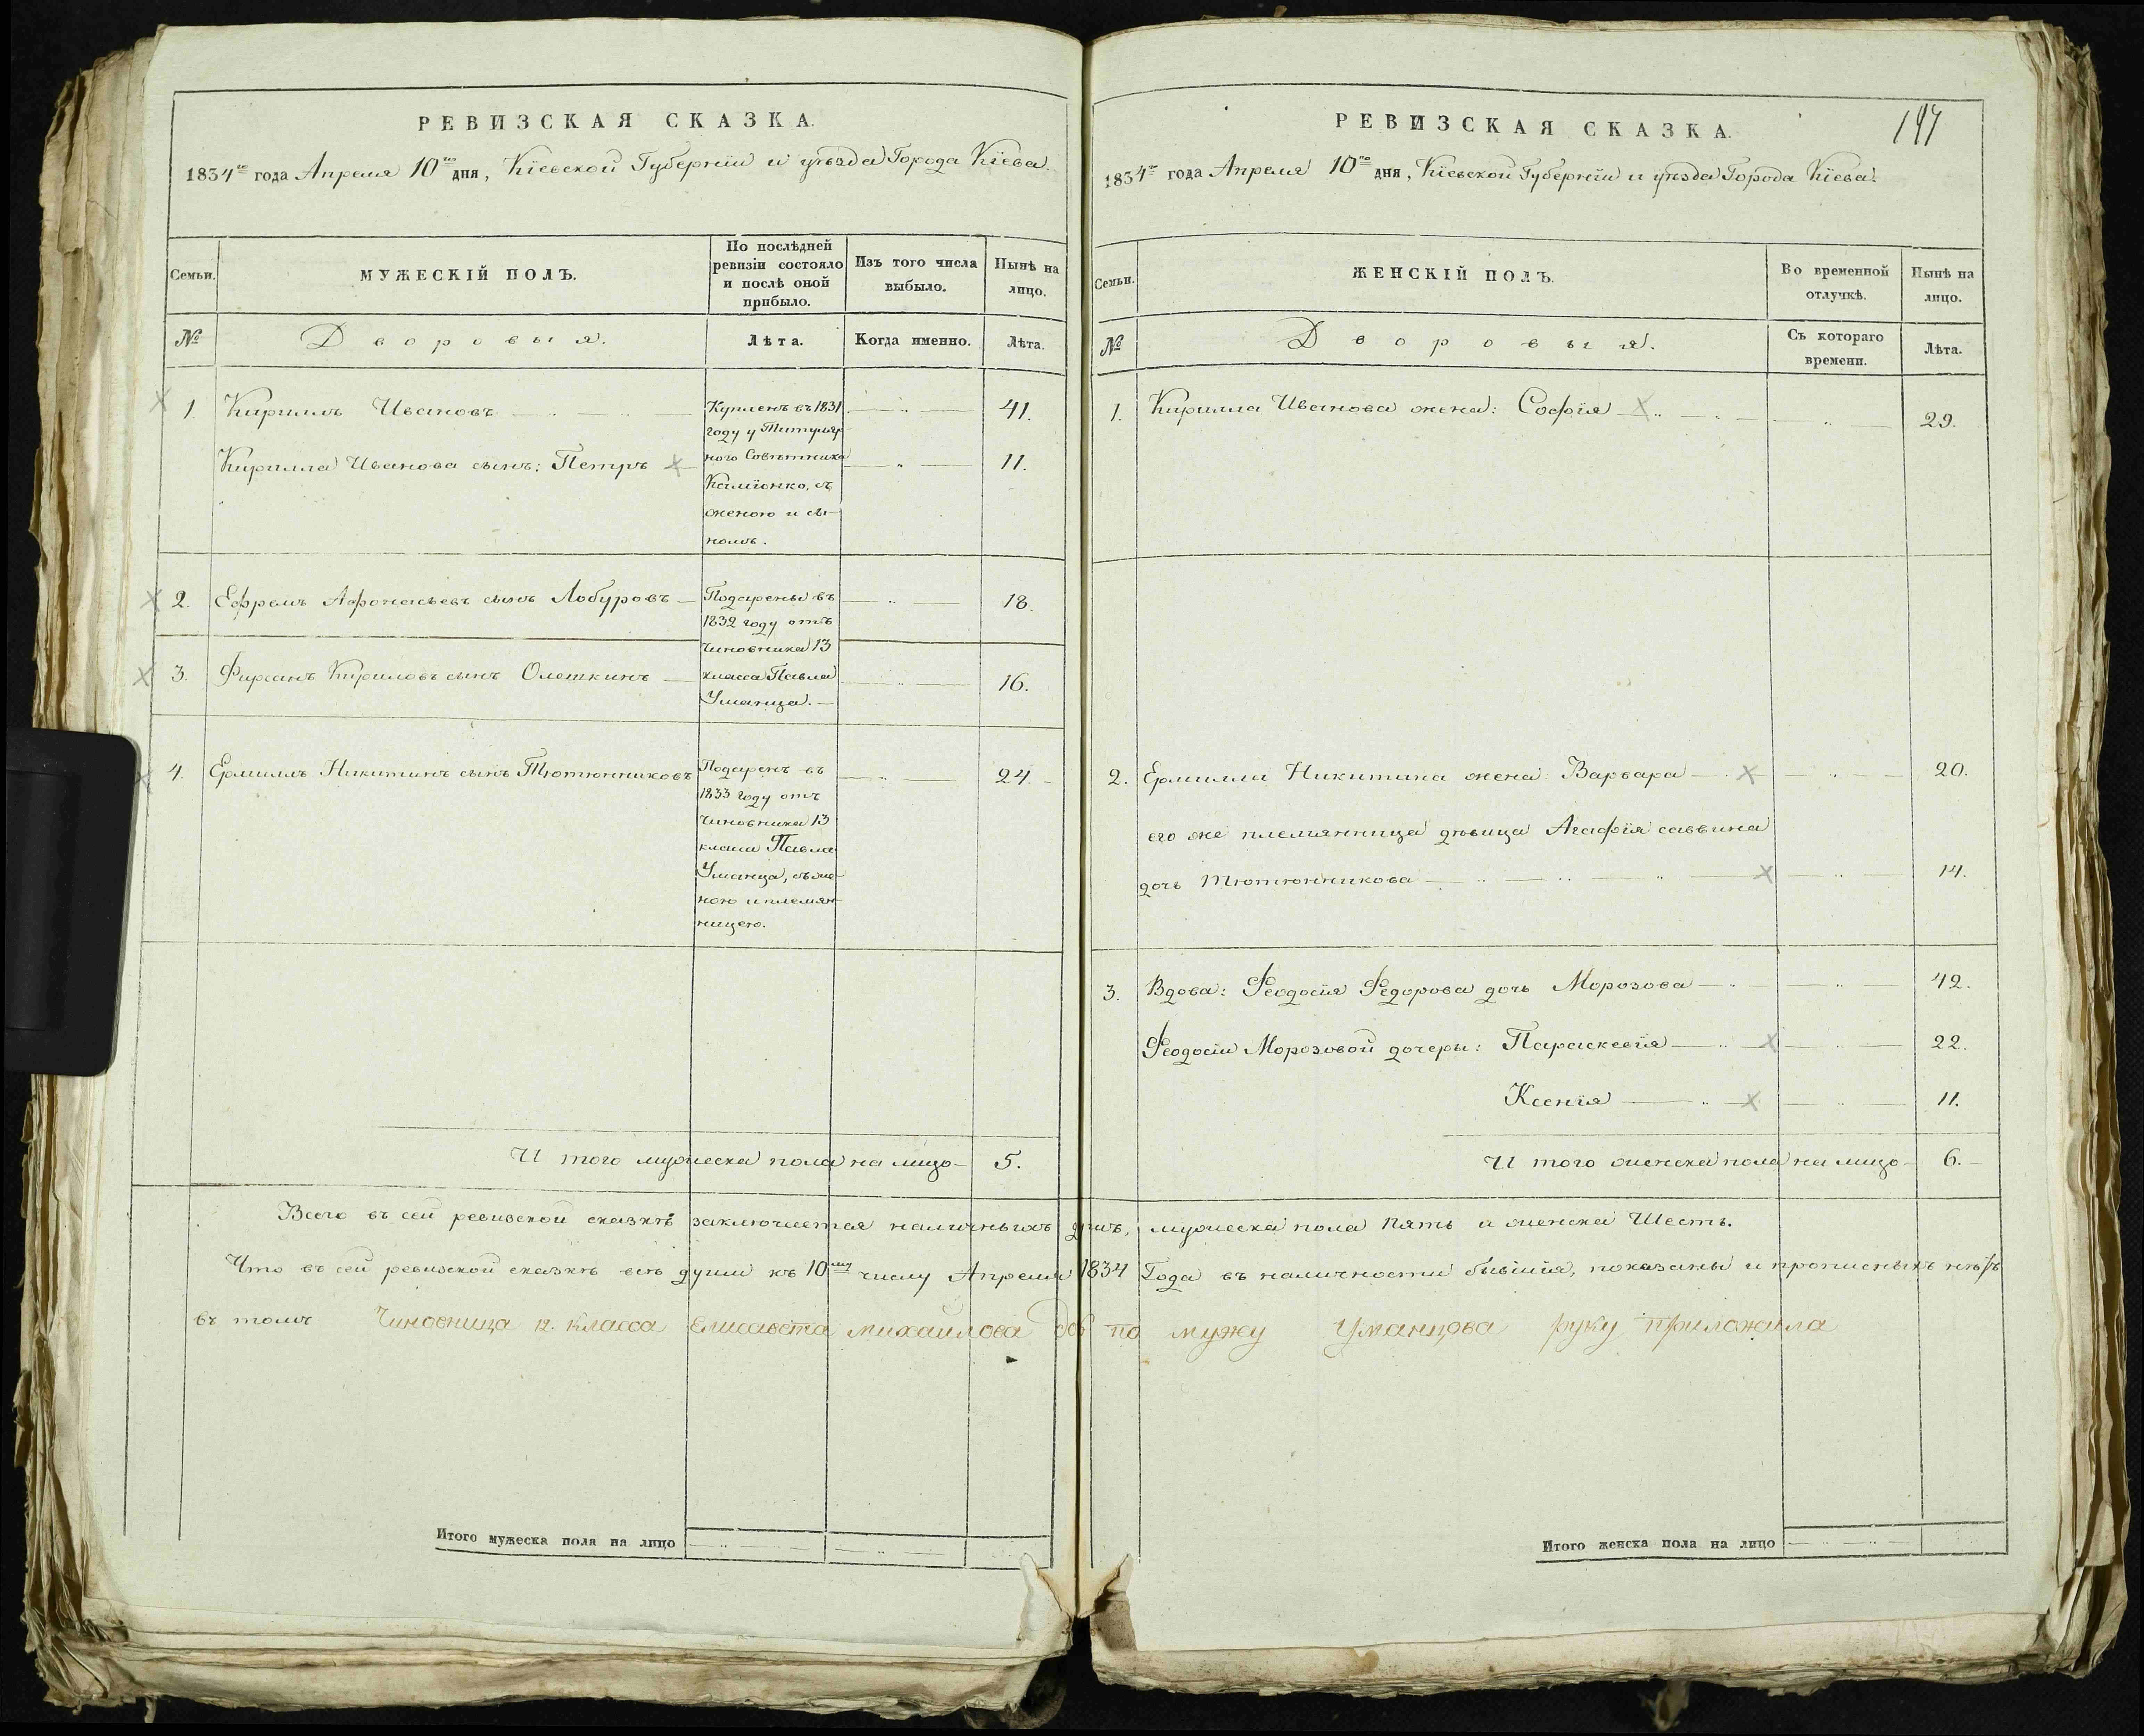 РЕВИЗСКАЯ СКАЗКА.
1834го года Апреля 10го дня, Кіевской Губерніи и уѣзда Города Кіева.
Семьи.
МУЖЕСКІЙ ПОЛЪ.
По послѣдней
ревизіи состояло
и послѣ оной
прибыло.
Изъ того числа
выбыло.
Нынѣ на
лицо.
№
Дворовыя.
Лѣта.
Когда именно.
Лѣта.
1. Кириллъ Ивановъ 41.
Кирилла Иванова сынъ: Петръ 11.
Купленъ въ 1831
году у Титуляр
ного Совѣтника
съ
женою и сы-
номъ.
2. Ефремъ Афонасьевъ сынъ Лобуровъ 18.
3. Фирсанъ Кириловъ сынъ Олешкинъ 16.
Подарены въ
1832 году отъ
Чиновника 13
класса Павла
Уманца.
4. Ермиллъ Никитинъ сынъ Тютюнниковъ 24.
Подаренъ въ
1833 году отъ
Чиновника 13
класса Павла
Уманца, съ же-
ною и племян
ницею.
И того мужеска пола на лицо 5.
РЕВИЗСКАЯ СКАЗКА.
197
1834го года Апреля 10го дня, Кіевской Губерніи и уѣзда Города Кіева.
Семьи.
ЖЕНСКІЙ ПОЛЪ.
Во временной
отлучкѣ.
Нынѣ на
лицо.
№
Дворовыя.
Съ котораго
времени.
Лѣта.
1. Кирилла Иванова жена: Софія 29.
2. Ермилла Никитина жена: Варвара 20.
его же племянница дѣвица Агафія саввина
дочь Тютюнникова 14.
3. Вдова: Феодосія Федорова дочь Морозова 42.
Феодосіи Морозовой дочеры: Параскевія 22.
Ксенія 11.
И того женска пола на лицо 6.
Всего въ сей ревизской сказкѣ заключается наличныхъ душъ, мужеска пола Пять а женска Шесть.
Что въ сей ревизской сказкѣ всѣ души къ 10му числу Апреля 1834 Года въ наличности бывшія, показаны и прописныхъ нѣтъ
въ томъ Чиновница 12. класса Елисавета михаилова доч по мужу Уманцова руку приложила
Итого мужеска пола на лицо
Итого женска пола на лицо